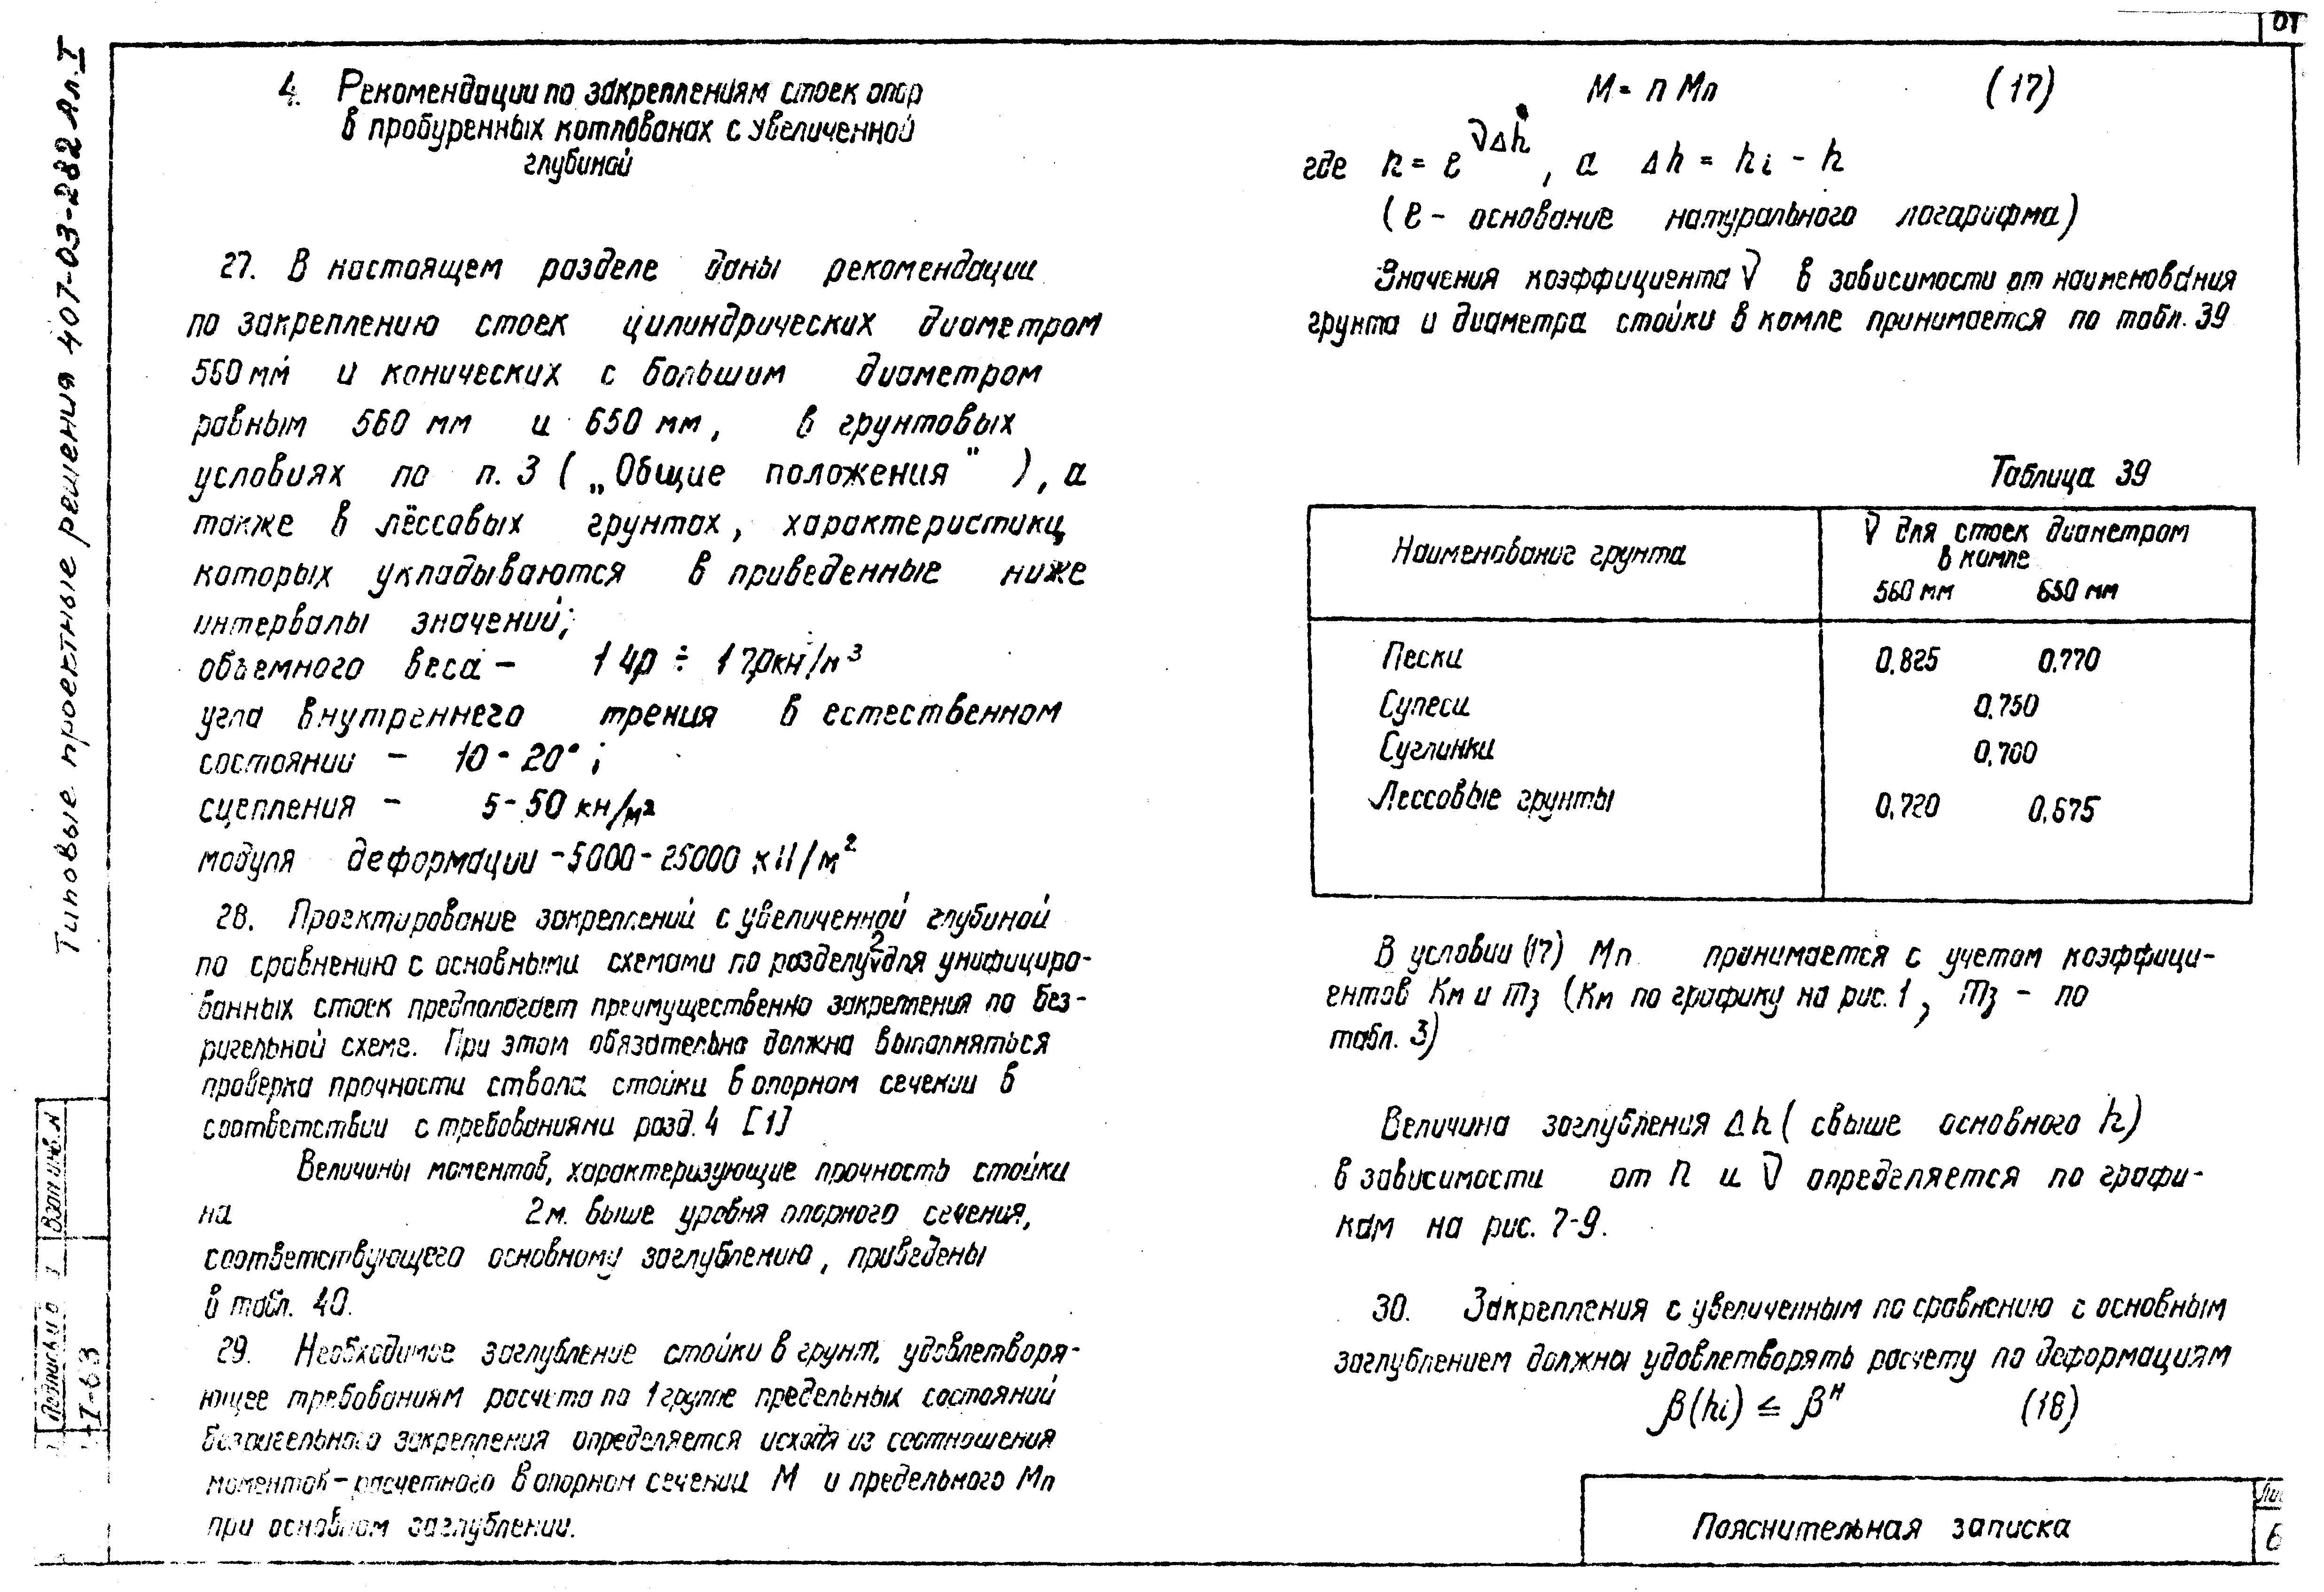 Типовые проектные решения 407-03-282 Ал. I
4. Рекомендации по закреплениям стоек опор
в пробуренных котлованах с увеличенной
глубиной
27. В настоящем разделе даны рекомендации
по закреплению стоек цилиндрических диаметром
560 мм и конических с большим диаметром
равным 560 мм и 650 мм, в грунтовых
условиях по п. 3 („Общие положения"), а
также в лёссовых грунтах, характеристики
которых укладываются в приведенные ниже
интервалы значений;
объемного веса - 14,0 ÷ 17,0 кн/м³
угла внутреннего трения в естественном
состоянии - 10 - 20° ;
сцепления - 5 - 50 кн/м²
модуля деформации - 5000 - 25000 кН/м²
28. Проектирование закреплений с увеличенной глубиной
по сравнению с основными схемами по разделу 2 для унифициро-
ванных стоек предполагает преимущественно закрепления по без-
ригельной схеме. При этом обязательно должна выполняться
проверка прочности ствола стойки в опорном сечении в
соответствии с требованиями разд. 4 [1]
Величины моментов, характеризующие прочность стойки
на 2м. выше уровня опорного сечения,
соответствующего основному заглублению, приведены
в табл. 40.
29. Необходимое заглубление стойки в грунт, удовлетворя-
ющее требованиям расчета по 1 группе предельных состояний
безригельного закрепления определяется исходя из соотношения
моментов - расчетного в опорном сечении М и предельного Мп
при основном заглублении.
М = n Мп (17)
где n = e^ν∆h , а ∆h = hi - h
(e - основание натурального логарифма)
Значения коэффициента ν в зависимости от наименования
грунта и диаметра стойки в комле принимается по табл. 39
Таблица 39
Наименование грунта
ν для стоек диаметром
в комле
560 мм 650 мм
Пески 0,825 0,770
Супеси 0,750
Суглинки 0,700
Лессовые грунты 0,720 0,675
В условии (17) Мп принимается с учетом коэффици-
ентов Км и mз (Км по графику на рис. 1, mз - по
табл. 3)
Величина заглубления ∆h (свыше основного h)
в зависимости от n и ν определяется по графи-
кам на рис. 7-9.
30. Закрепления с увеличенным по сравнению с основным
заглублением должны удовлетворять расчету по деформациям
β(hi) ≤ βᴴ (18)
Пояснительная записка
6
Взам инв. N